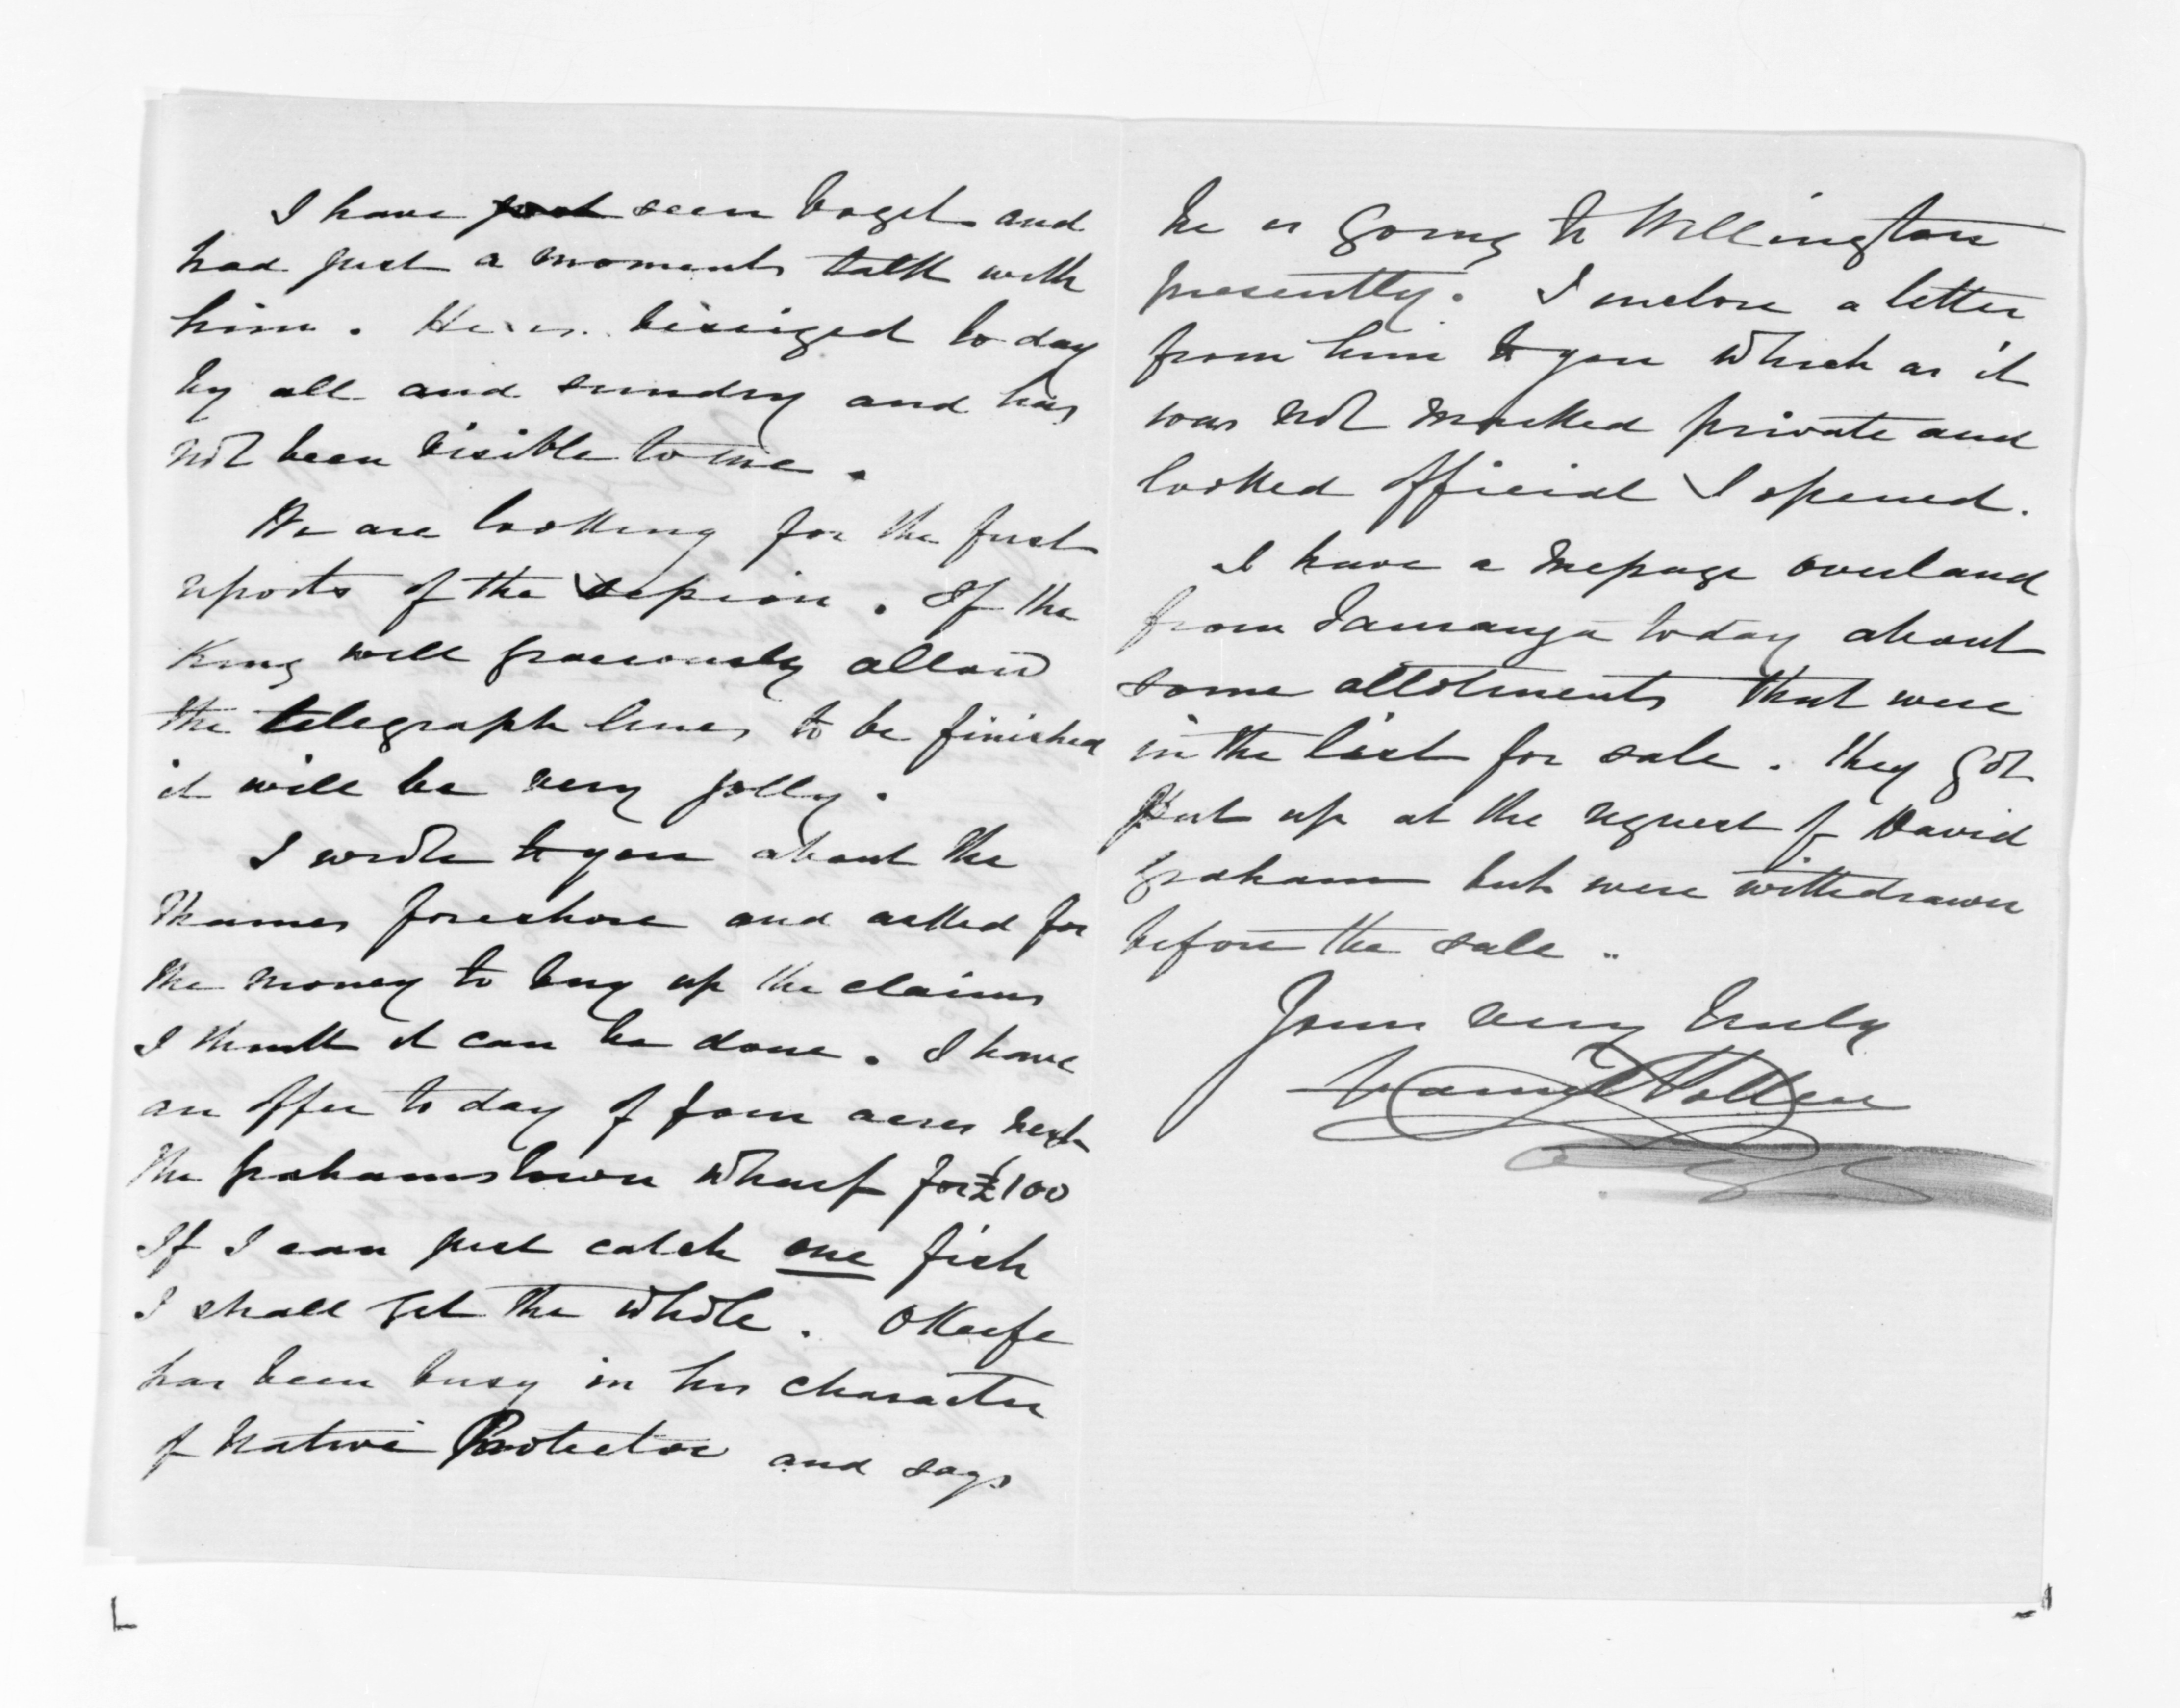 I have seen Vogel and
had just a moments talk with
him. He is beseiged to day
by all and sundry and has
not been visible to me.
We are looking for the first
reports of the session. If the
King will graciously allow
the telegraph lines to be finished
it will be very jolly.
I wrote to you about the
Thames foreshore and asked for
the money to buy up the claims
I think it can be done. I have
an offer to day of four acres next
the Grahamstown Wharf for £100
If I can just catch one fish
I shall get the whole. OKeefe
has been busy in his character
of Native Protector and says
he is going to Wellington
presently. I enclose a letter
from him to you which as it
was not marked private and
looked official I opened.
I have a message overland
from Tauranga today about
some allotments that were
in the list for sale. They got
put up at the request of David
Graham but were withdrawn
before the sale..
Yours very truly
Daniel Pollen